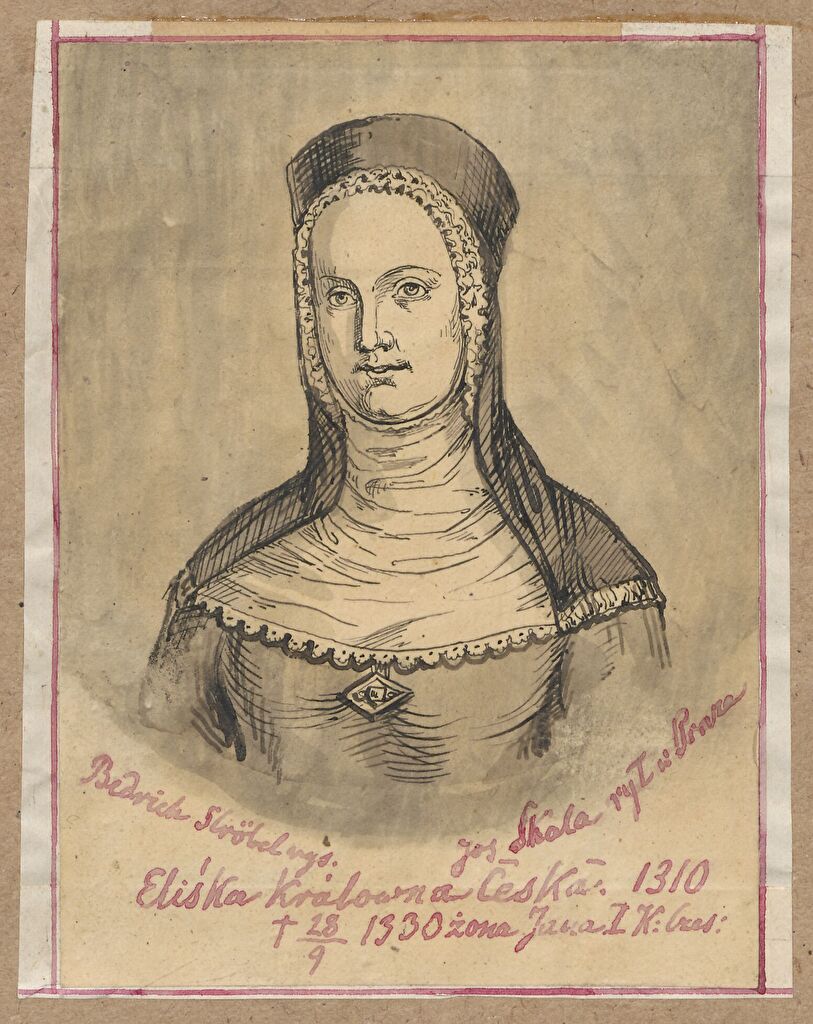 Bedrich Ströbel rys.
Jos Skala ryt w Praze
Eliśka Królowna Česká: 1310
† 28/9 1330 żona Jana I K: Czes: